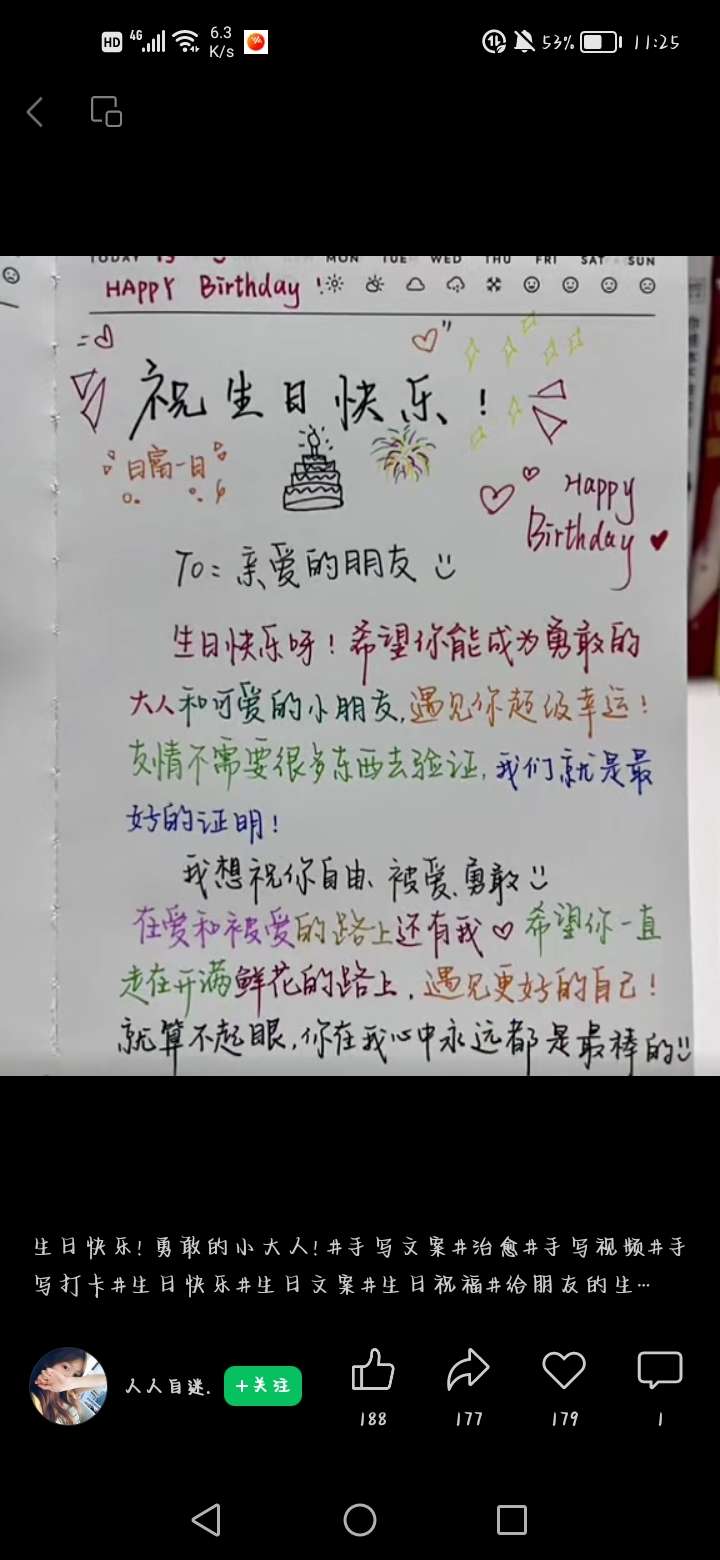 HD 4G 6.3 K/s 53% 11:25
MON TUE WED THU FRI SAT SUN
HAppY Birthday !
祝生日快乐!
日富一日
Happy
Birthday
To: 亲爱的朋友
生日快乐呀!希望你能成为勇敢的
大人和可爱的小朋友,遇见你超级幸运!
友情不需要很多东西去验证,我们就是最
好的证明!
我想祝你自由、被爱、勇敢
在爱和被爱的路上还有我♡希望你一直
走在开满鲜花的路上,遇见更好的自己!
就算不起眼,你在我心中永远都是最棒的
生日快乐!勇敢的小大人!#手写文案#治愈#手写视频#手
写打卡#生日快乐#生日文案#生日祝福#给朋友的生…
人人自迷. +关注
188 177 179 1